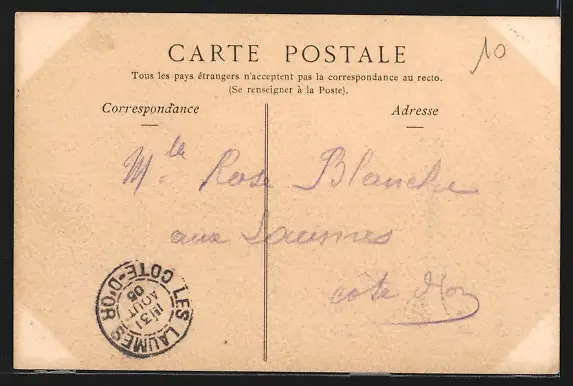 10
CARTE POSTALE
Tous les pays étrangers n'acceptent pas la correspondance au recto.
(Se renseigner à la Poste).
Correspondance
Adresse
Mlle Rose Blanche
aux Laumes
côte d'or
LES LAUMES COTE-D'OR
31
AOUT
05